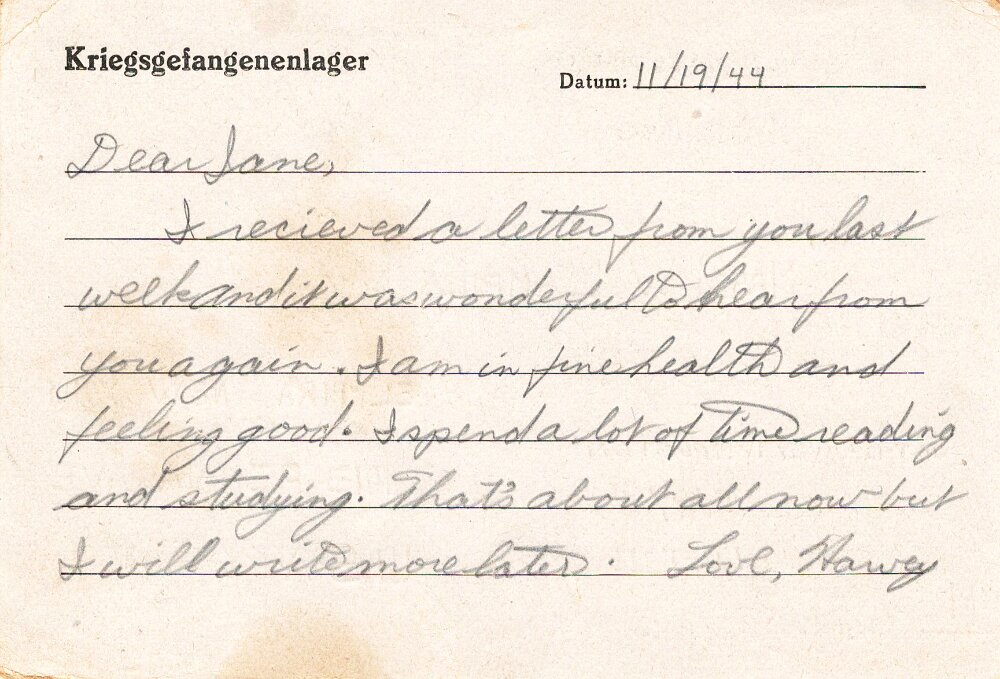 Kriegsgefangenenlager
Datum: 11/19/44
Dear Jane,
I recieved a letter from you last
week and it was wonderful to hear from
you again. I am in fine health and
feeling good. I spend a lot of time reading
and studying. That's about all now but
I will write more later. Love, Harvey